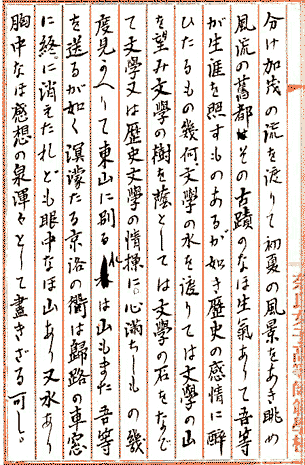 分け加茂の流を渡りて初夏の風景をあき眺め
風流の舊都はその古蹟のなほ生氣ありて吾等
が生涯を照すものあるが如き歴史の感情に醉
ひたるもの幾何文學の水を渡りては文學の山
を望み文學の樹を蔭としては文學の石をなで
て文學又は歴史文學の情操に心満ちしもの幾
度見かへりて東山に別るれば山もまた吾等
を送るが如く溟濛たる京洛の衢は歸路の車窓
に終に消えたれども眼中なほ山あり又水あり
胸中なほ感想の泉渾々として盡きざる可し。